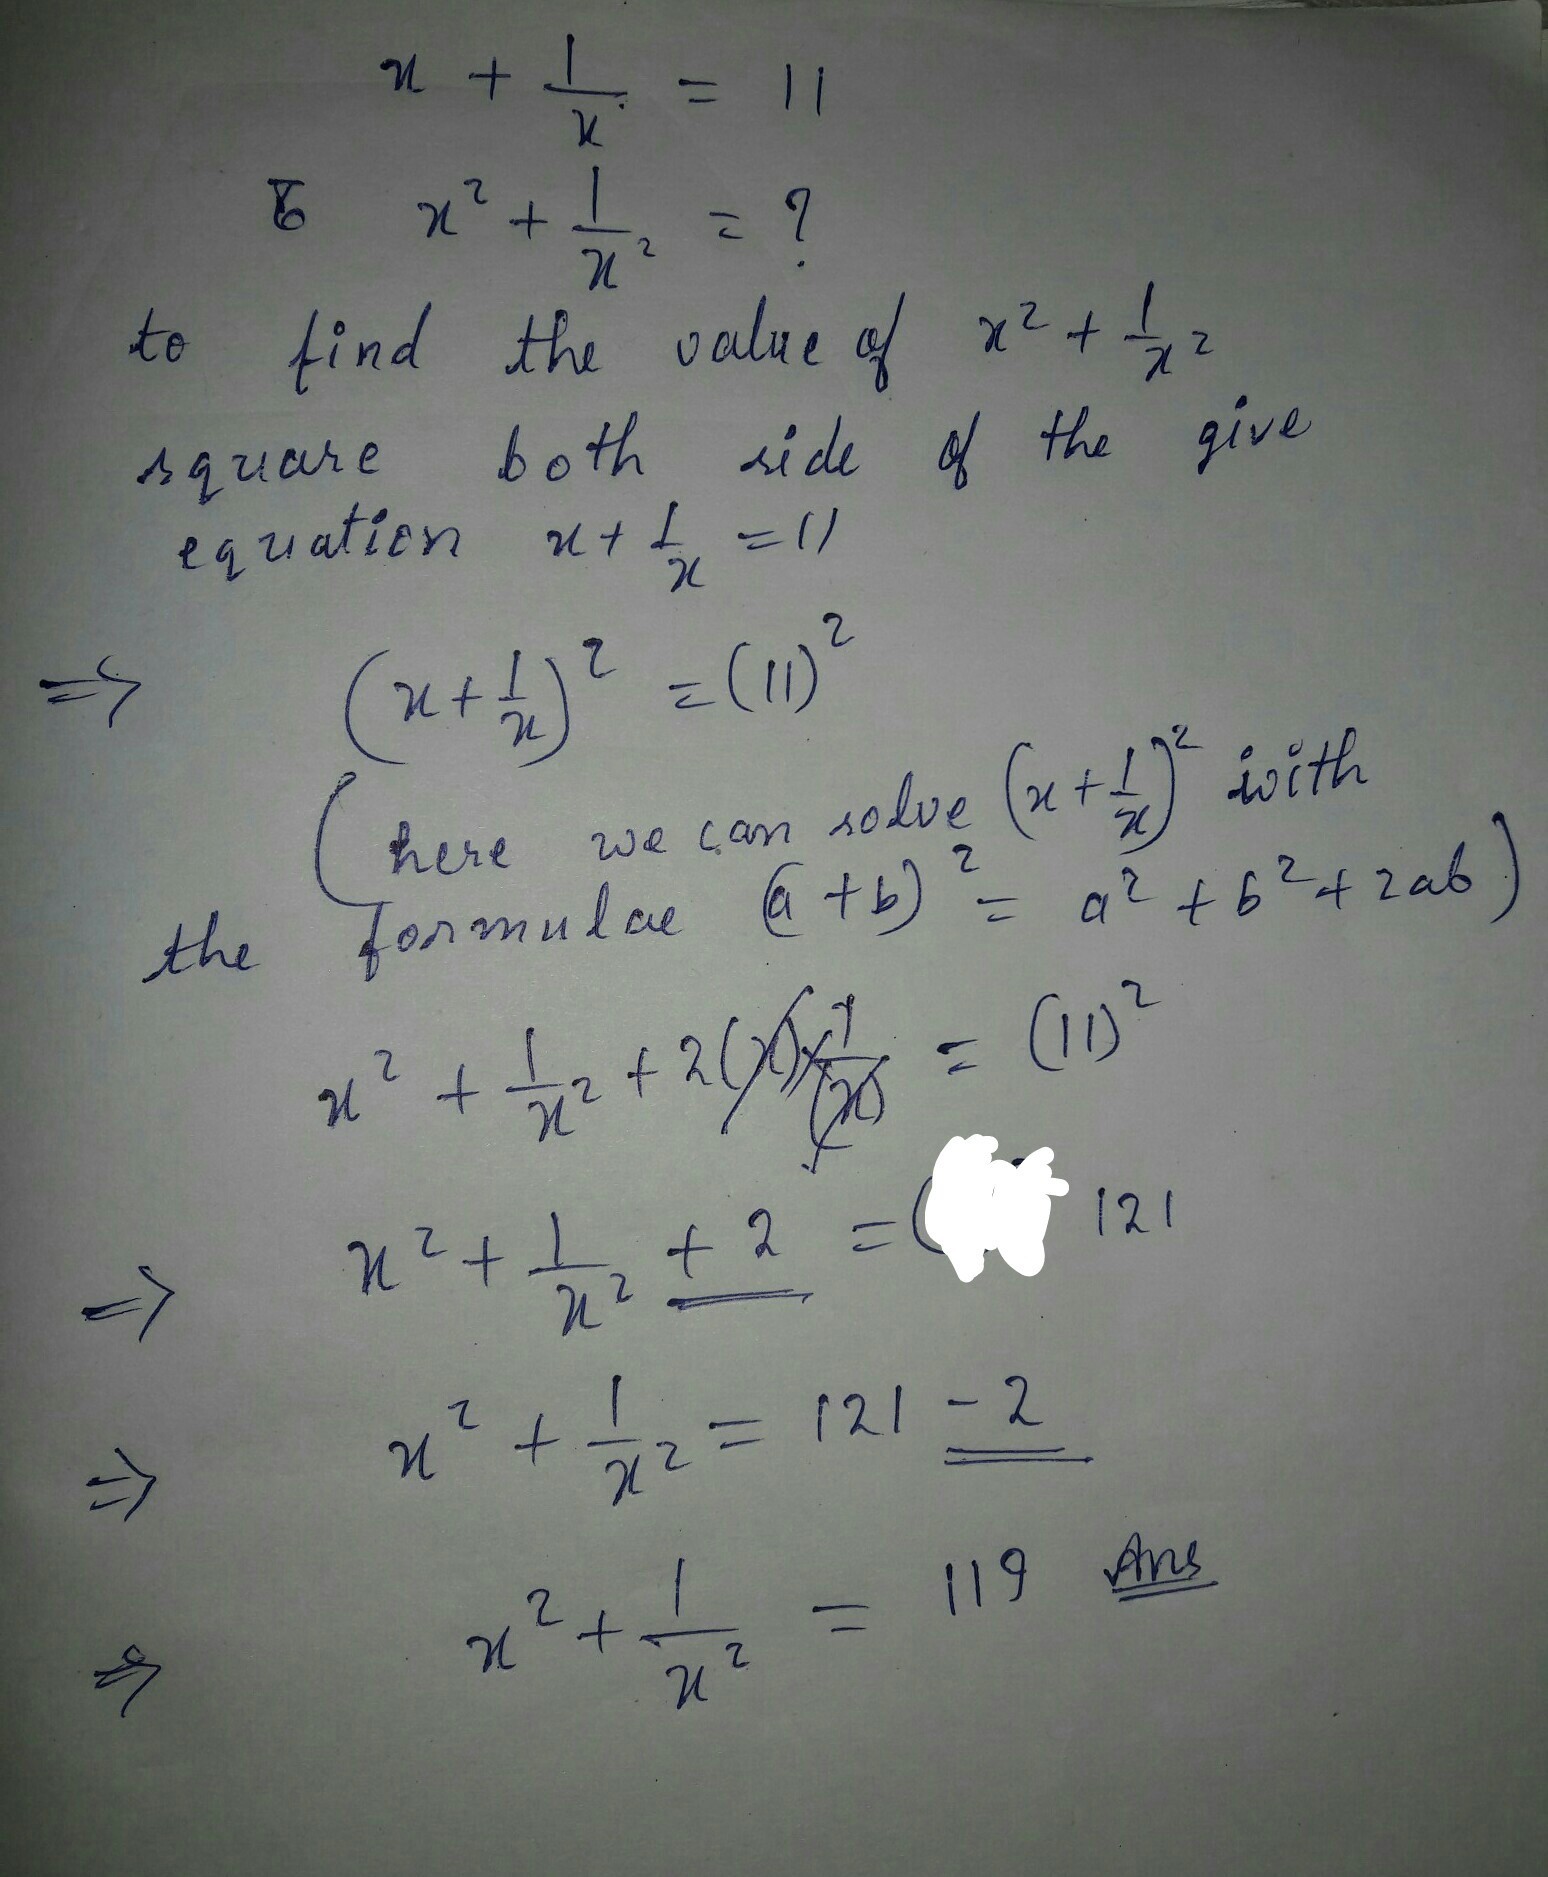 x + 1/x = 11
x² + 1/x² = ?
to find the value of x² + 1/x²
square both side of the give
equation x + 1/x = 11
⇒ (x + 1/x)² = (11)²
(here we can solve (x + 1/x)² with
the formulae (a + b)² = a² + b² + 2ab)
x² + 1/x² + 2(x) × 1/(x) = (11)²
⇒ x² + 1/x² + 2 = ( 121
⇒ x² + 1/x² = 121 - 2
⇒ x² + 1/x² = 119 Ans